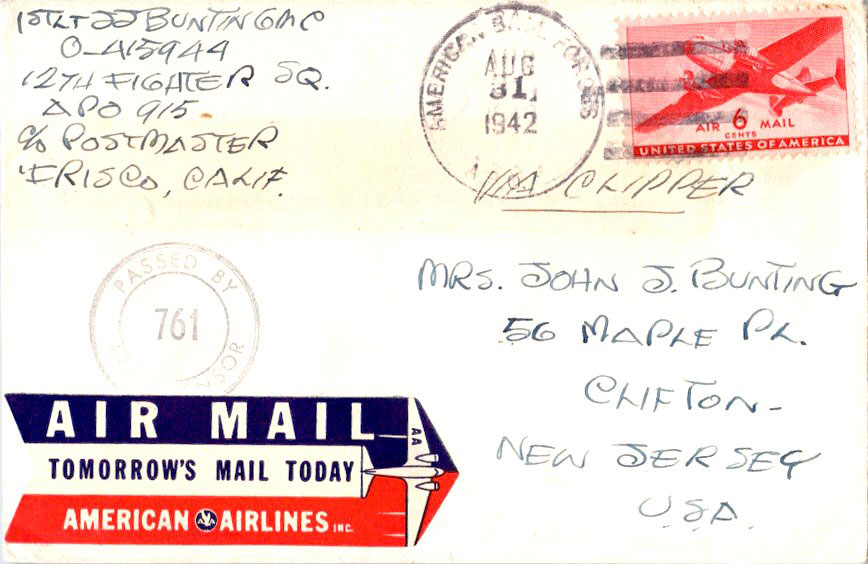 1ST LT JJ BUNTING MC
O-415944
12TH FIGHTER SQ.
APO 915
C/O POSTMASTER
'FRISCO, CALIF.
AMERICAN BASE FORCES
AUG
31
1942
AIR 6 MAIL
CENTS
UNITED STATES OF AMERICA
VIA CLIPPER
PASSED BY
761
MRS. JOHN J. BUNTING
56 MAPLE PL.
CLIFTON-
NEW JERSEY
U.S.A.
AIR MAIL
AA
TOMORROW'S MAIL TODAY
AMERICAN AA AIRLINES INC.